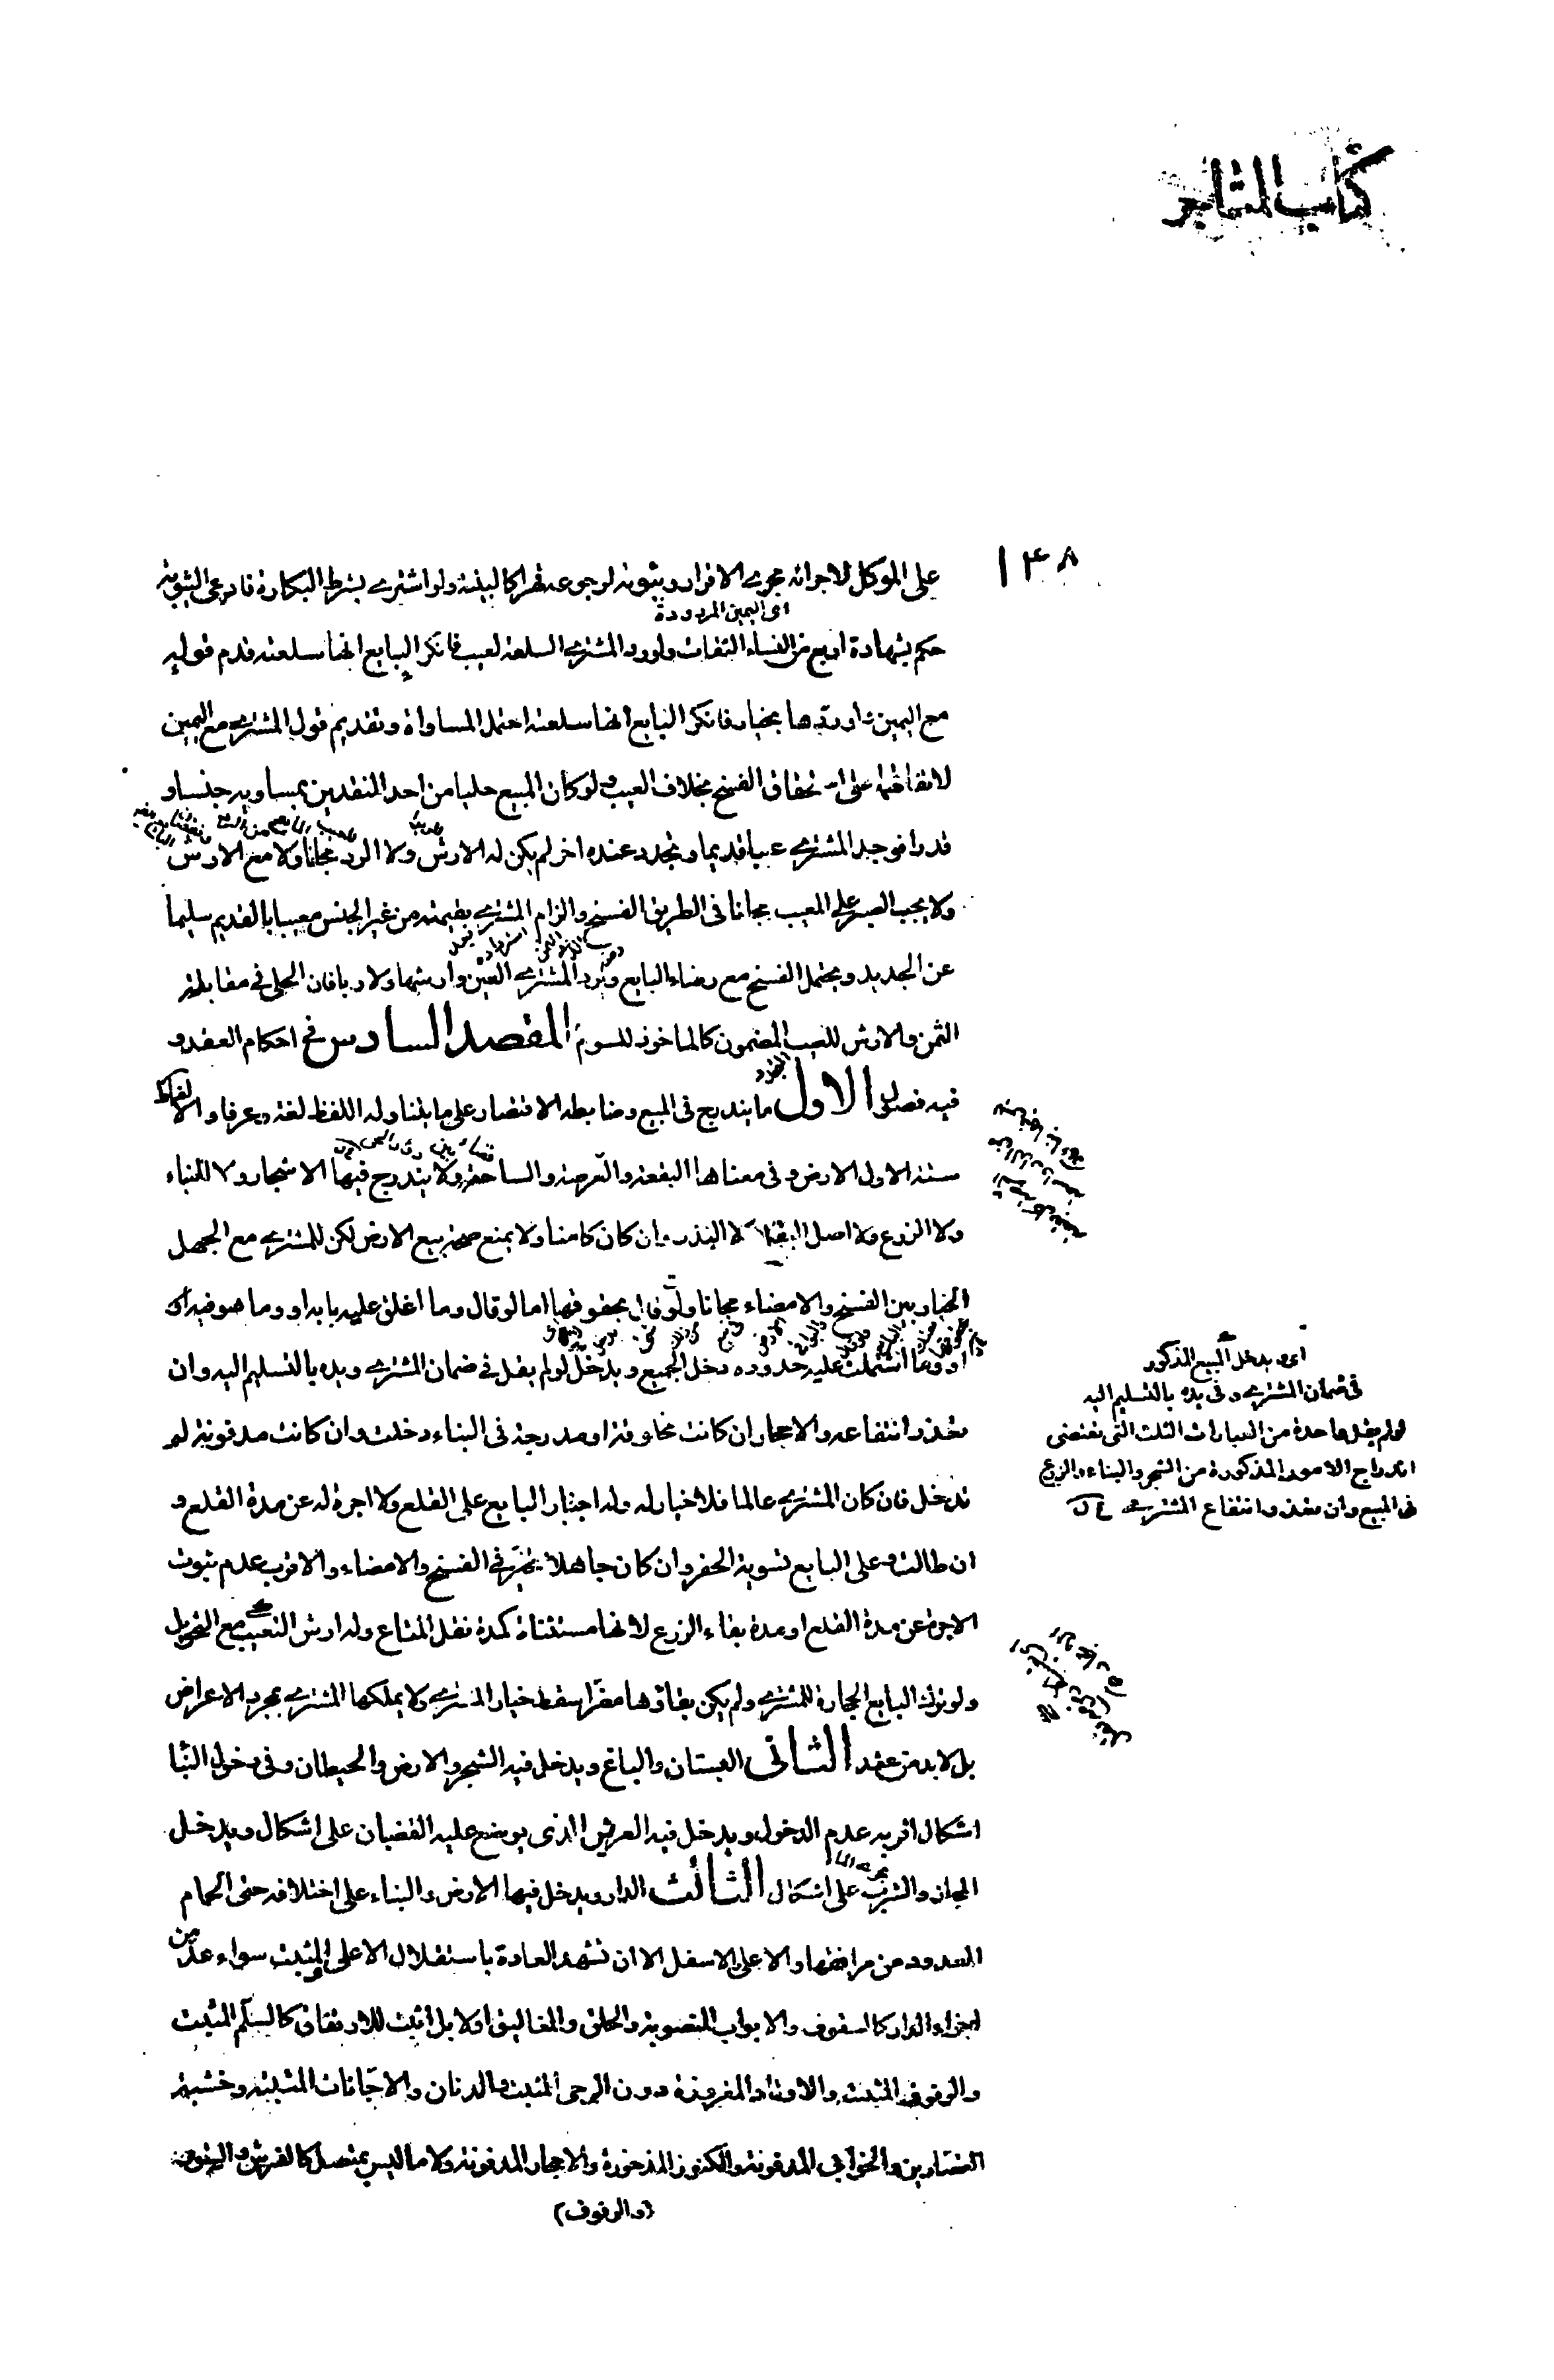 كتاب المتاجر
١٣٨
على الموكل لاجرائه مجرى الاقرار وثبوته لرجوعه قهرا كالبينة ولو اشترى بشرط البكارة فادعى الثيوبة
اى اليمين المردودة
حكم بشهادة اربع من النساء الثقات ولو رد المشترى السلعة لعيب فانكر البايع انها سلعته قدم قوله
مع اليمين ولو ردها بخيار فانكر البايع انها سلعته احتمل المساواة وتقديم قول المشترى مع اليمين
لاتفاقهما على استحقاق الفسخ بخلاف العيب ولو كان المبيع حليا من احد النقدين بمساويه جنسا و
قدرا فوجد المشترى عيبا قديما وتجدد عنده اخر لم يكن له الارش ولا الرد مجانا ولا مع الارش
ولا يجب الصبر على المعيب مجانا فى الطريق الفسخ والزام المشترى بقيمته من غير الجنس معيبا بالقديم سليما
عن الجديد ويحتمل الفسخ مع رضاء البايع ويرد المشترى العين وارشها ولا ربا فان الحلى فى مقابلة
الثمن والارش للعيب المضمون كالماخوذ للسوم المقصد السادس فى احكام العقد و
فيه فصول الاول ما يندرج فى المبيع وضابطه الاقتصار على ما يتناوله اللفظ لغة وعرفا والالفاظ
ستة الاول الارض وفى معناها البقعة والعرصة والساحة ولا يندرج فيها الاشجار ولا البناء
ولا الزرع ولا اصل البقل ولا البذر وان كان كامنا ولا يمنع صحة بيع الارض لكن للمشترى مع الجهل
الخيار بين الفسخ والامضاء مجانا ولو قال بحقوقها اما لو قال وما اغلق عليه بابه او وما هو فيه
او وما اشتملت عليه حدوده دخل الجميع ويدخل لو لم يقل فى ضمان المشترى ويده بالتسليم اليه وان
تعذر انتفاعه والاحجار ان كانت مخلوقة او مدرجة فى البناء دخلت وان كانت مدفونة لم
تدخل فان كان المشترى عالما فلا خيار له وله اجبار البايع على القلع ولا اجرة له عن مدة القلع و
ان طالت وعلى البايع تسوية الحفر وان كان جاهلا تخير فى الفسخ والامضاء والاقرب عدم ثبوت
الاجرة عن مدة القلع او مدة بقاء الزرع لانها مستثناة كمدة نقل المتاع وله ارش التعيب مع التحويل
ولو ترك البايع الحجارة للمشترى ولم يكن بقاؤها مضرا سقط خيار المشترى ولا يملكها المشترى بمجرد الاعراض
بل لا بد من عقد الثانى البستان والباغ ويدخل فيه الشجر والارض والحيطان وفى دخول البناء
اشكال اقربه عدم الدخول ويدخل فيه العريش الذى يوضع عليه القضبان على اشكال ويدخل
المجاز والشرب على اشكال الثالث الدار ويدخل فيها الارض والبناء على اختلافه حتى الحمام
المعدود من مرافقها والاعلى والاسفل الا ان تشهد العادة باستقلال الاعلى والمثبت سواء عد من
اجزاء الدار كالسقوف والابواب المنصوبة والحلق والمغاليق او لا بل اثبت للارتفاق كالسلم المثبت
والرفوف المثبتة والاوتاد المغروزة دون الرحى المثبتة والدنان والاجانات المثبتة وخشبة
القصارين والخوابى المدفونة والكنوز المذخورة والاحجار المدفونة ولا ما ليس بمتصل كالفرش والستور
(والرفوف)
اى ويدخل المبيع المذكور
فى ضمان المشترى وفى يده بالتسليم اليه
لو لم يقل واحدة من العبارات الثلث التى تقتضى
اندراج الامور المذكورة من الشجر والبناء والزرع
فى المبيع وان تعذر انتفاع المشترى